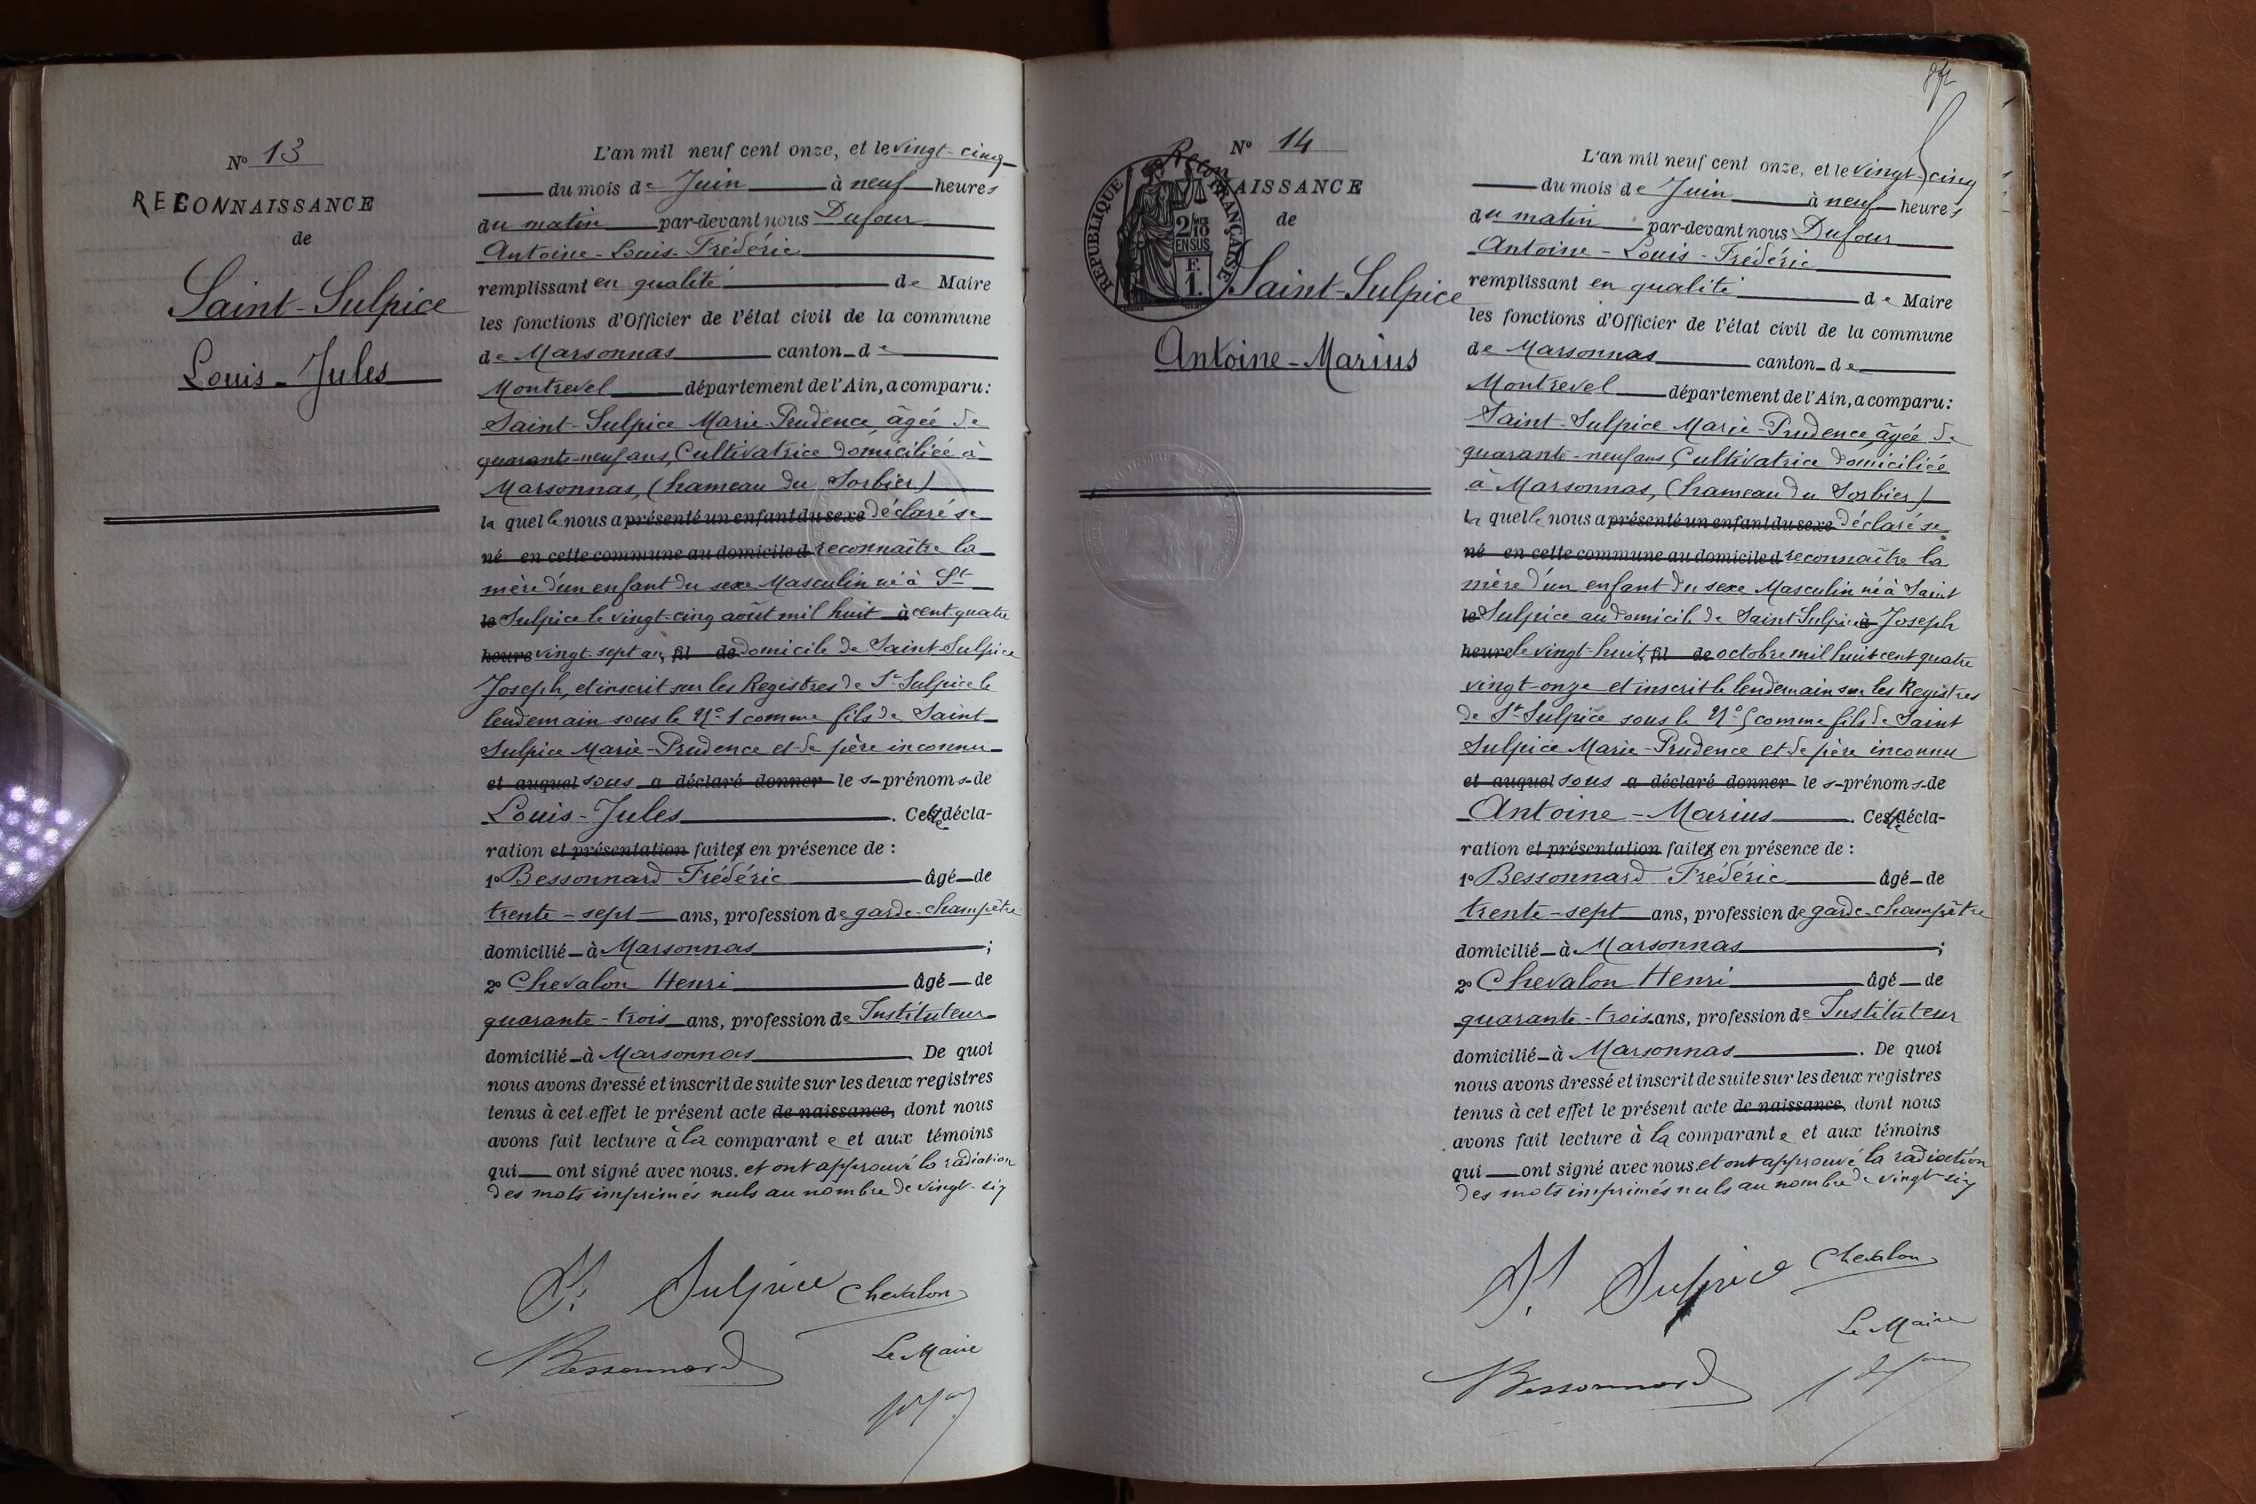 Nº 13
RECONNAISSANCE
de
Saint-Sulpice
Louis-Jules
L'an mil neuf cent onze, et le vingt-cinq
du mois de Juin à neuf heures
du matin par-devant nous Dufour
Antoine-Louis-Frédéric
remplissant en qualité de Maire
les fonctions d'Officier de l'état civil de la commune
de Marsonnas canton de
Montrevel département de l'Ain, a comparu:
Saint-Sulpice Marie-Prudence, âgée de
quarante-neuf ans, Cultivatrice domiciliée à
Marsonnas, (hameau du Sorbier)
laquelle nous a présenté un enfant du sexe déclaré se
né en cette commune au domicile d reconnaître la
mère d'un enfant du sexe Masculin né à St
le Sulpice le vingt-cinq août mil huit à cent quatre
heure vingt-sept au, fil de domicile de Saint-Sulpice
Joseph, et inscrit sur les Registres de St Sulpice le
lendemain sous le Nº 1 comme fils de Saint-
Sulpice Marie-Prudence et de père inconnu
et auquel sous a déclaré donner les prénoms de
Louis-Jules. Cette décla-
ration et présentation faites en présence de :
1º Bessonnard Frédéric âgé de
trente-sept ans, profession de garde-champêtre
domicilié à Marsonnas ;
2º Chevalon Henri âgé de
quarante-trois ans, profession de Instituteur
domicilié à Marsonnas. De quoi
nous avons dressé et inscrit de suite sur les deux registres
tenus à cet effet le présent acte de naissance, dont nous
avons fait lecture à la comparante et aux témoins
qui ont signé avec nous. et ont approuvé la radiation
des mots imprimés nuls au nombre de vingt-six
St Sulpice Chevalon
Bessonnard Le Maire
Nº 14
RECONNAISSANCE
de
RÉPUBLIQUE FRANÇAISE
2/10
EN SUS
F.
1.
Saint-Sulpice
Antoine-Marius
L'an mil neuf cent onze, et le vingt-cinq
du mois de Juin à neuf heures
du matin par-devant nous Dufour
Antoine-Louis-Frédéric
remplissant en qualité de Maire
les fonctions d'Officier de l'état civil de la commune
de Marsonnas canton de
Montrevel département de l'Ain, a comparu:
Saint-Sulpice Marie-Prudence, âgée de
quarante-neuf ans, Cultivatrice domiciliée
à Marsonnas, (hameau du Sorbier)
laquelle nous a présenté un enfant du sexe déclaré se
né en cette commune au domicile d reconnaître la
mère d'un enfant du sexe Masculin né à Saint
le Sulpice au domicile de Saint Sulpice à Joseph
heure le vingt-huit, fil de octobre mil huit cent quatre
vingt-onze et inscrit le lendemain sur les Registres
de St-Sulpice sous le Nº 5 comme fils de Saint
Sulpice Marie-Prudence et de père inconnu
et auquel sous a déclaré donner les prénoms de
Antoine-Marius. Cette décla-
ration et présentation faites en présence de :
1º Bessonnard Frédéric âgé de
trente-sept ans, profession de garde-champêtre
domicilié à Marsonnas ;
2º Chevalon Henri âgé de
quarante-trois ans, profession de Instituteur
domicilié à Marsonnas. De quoi
nous avons dressé et inscrit de suite sur les deux registres
tenus à cet effet le présent acte de naissance, dont nous
avons fait lecture à la comparante et aux témoins
qui ont signé avec nous. et ont approuvé la radiation
des mots imprimés nuls au nombre de vingt-six
St Sulpice Chevalon
Bessonnard Le Maire